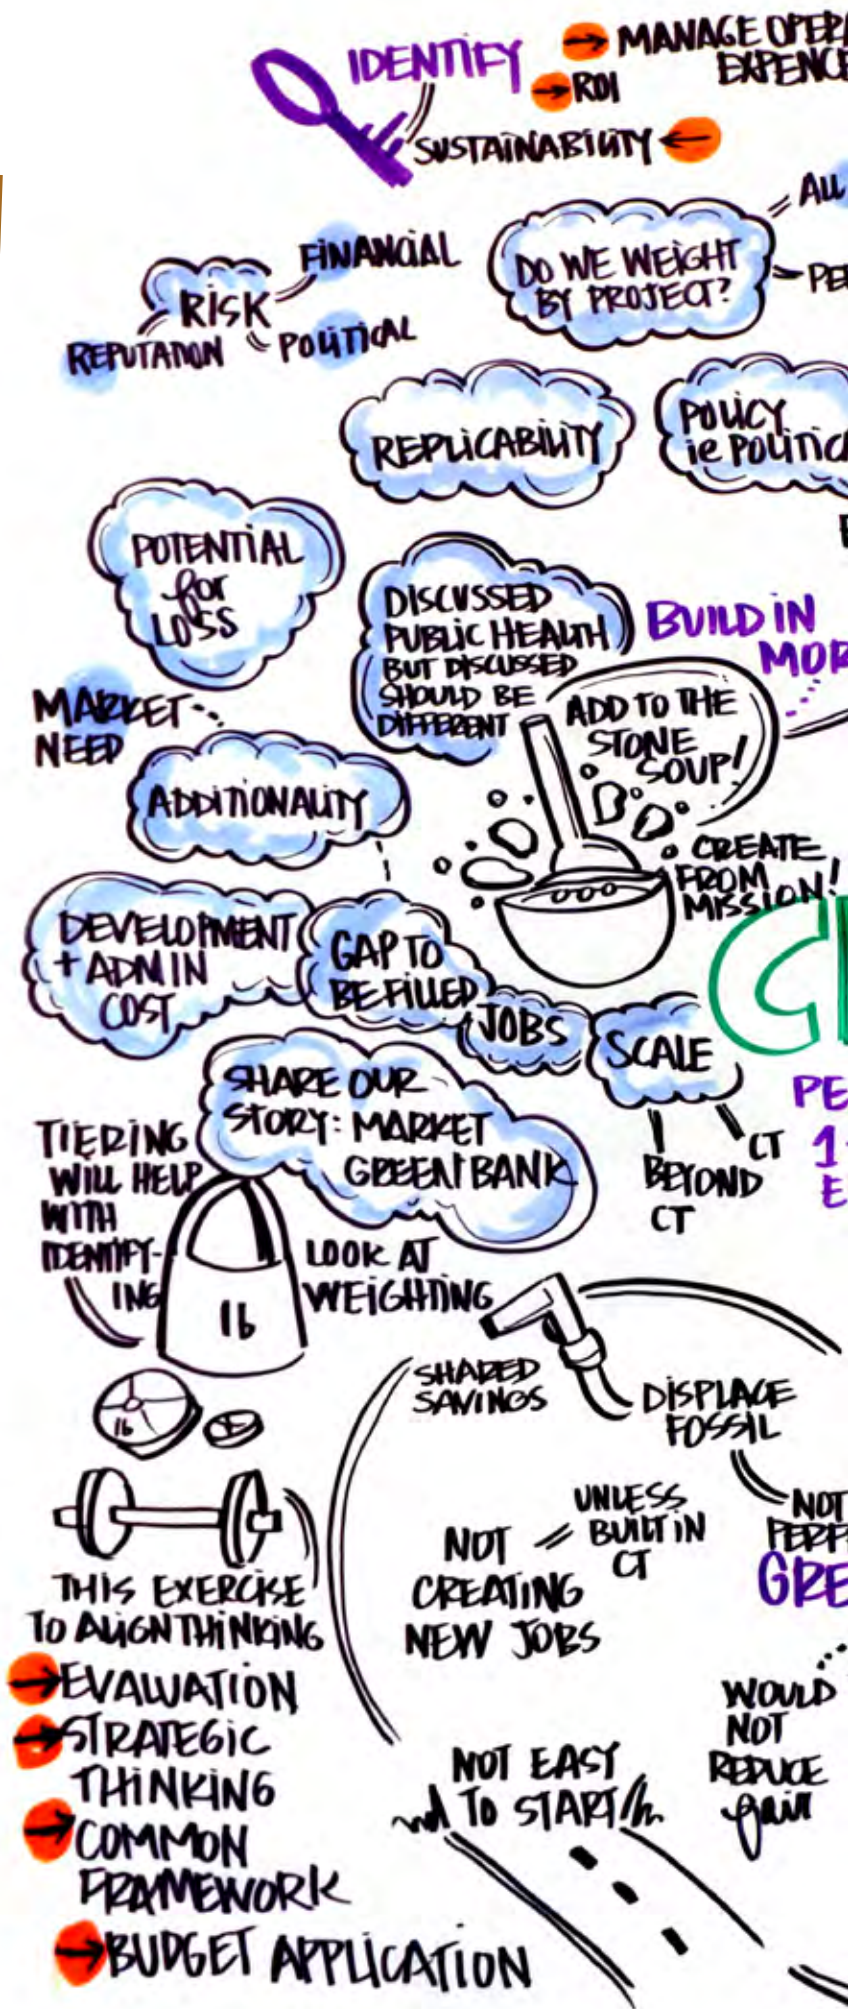 IDENTIFY
MANAGE OPERA
EXPENCE
ROI
SUSTAINABILITY
ALL
FINANCIAL
RISK
REPUTATION
POLITICAL
DO WE WEIGHT
BY PROJECT?
PE
REPLICABILITY
POLICY
ie POLITICA
POTENTIAL
for
LOSS
DISCUSSED
PUBLIC HEALTH
BUT DISCUSSED
SHOULD BE
DIFFERENT
BUILD IN
MOR
MARKET
NEED
ADD TO THE
STONE
SOUP!
ADDITIONALITY
CREATE
FROM
MISSION!
DEVELOPMENT
+ ADMIN
COST
GAP TO
BE FILLED
JOBS
SCALE
CT
BEYOND
CT
PE
1
E
SHARE OUR
STORY: MARKET
GREEN BANK
TIERING
WILL HELP
WITH
IDENTIFY-
ING
1b
LOOK AT
WEIGHTING
1b
SHARED
SAVINGS
DISPLACE
FOSSIL
NOT
PERFE
GREE
UNLESS
BUILT IN
CT
NOT
CREATING
NEW JOBS
THIS EXERCISE
TO ALIGN THINKING
EVALUATION
STRATEGIC
THINKING
COMMON
FRAMEWORK
BUDGET APPLICATION
WOULD
NOT
REDUCE
gain
NOT EASY
TO START